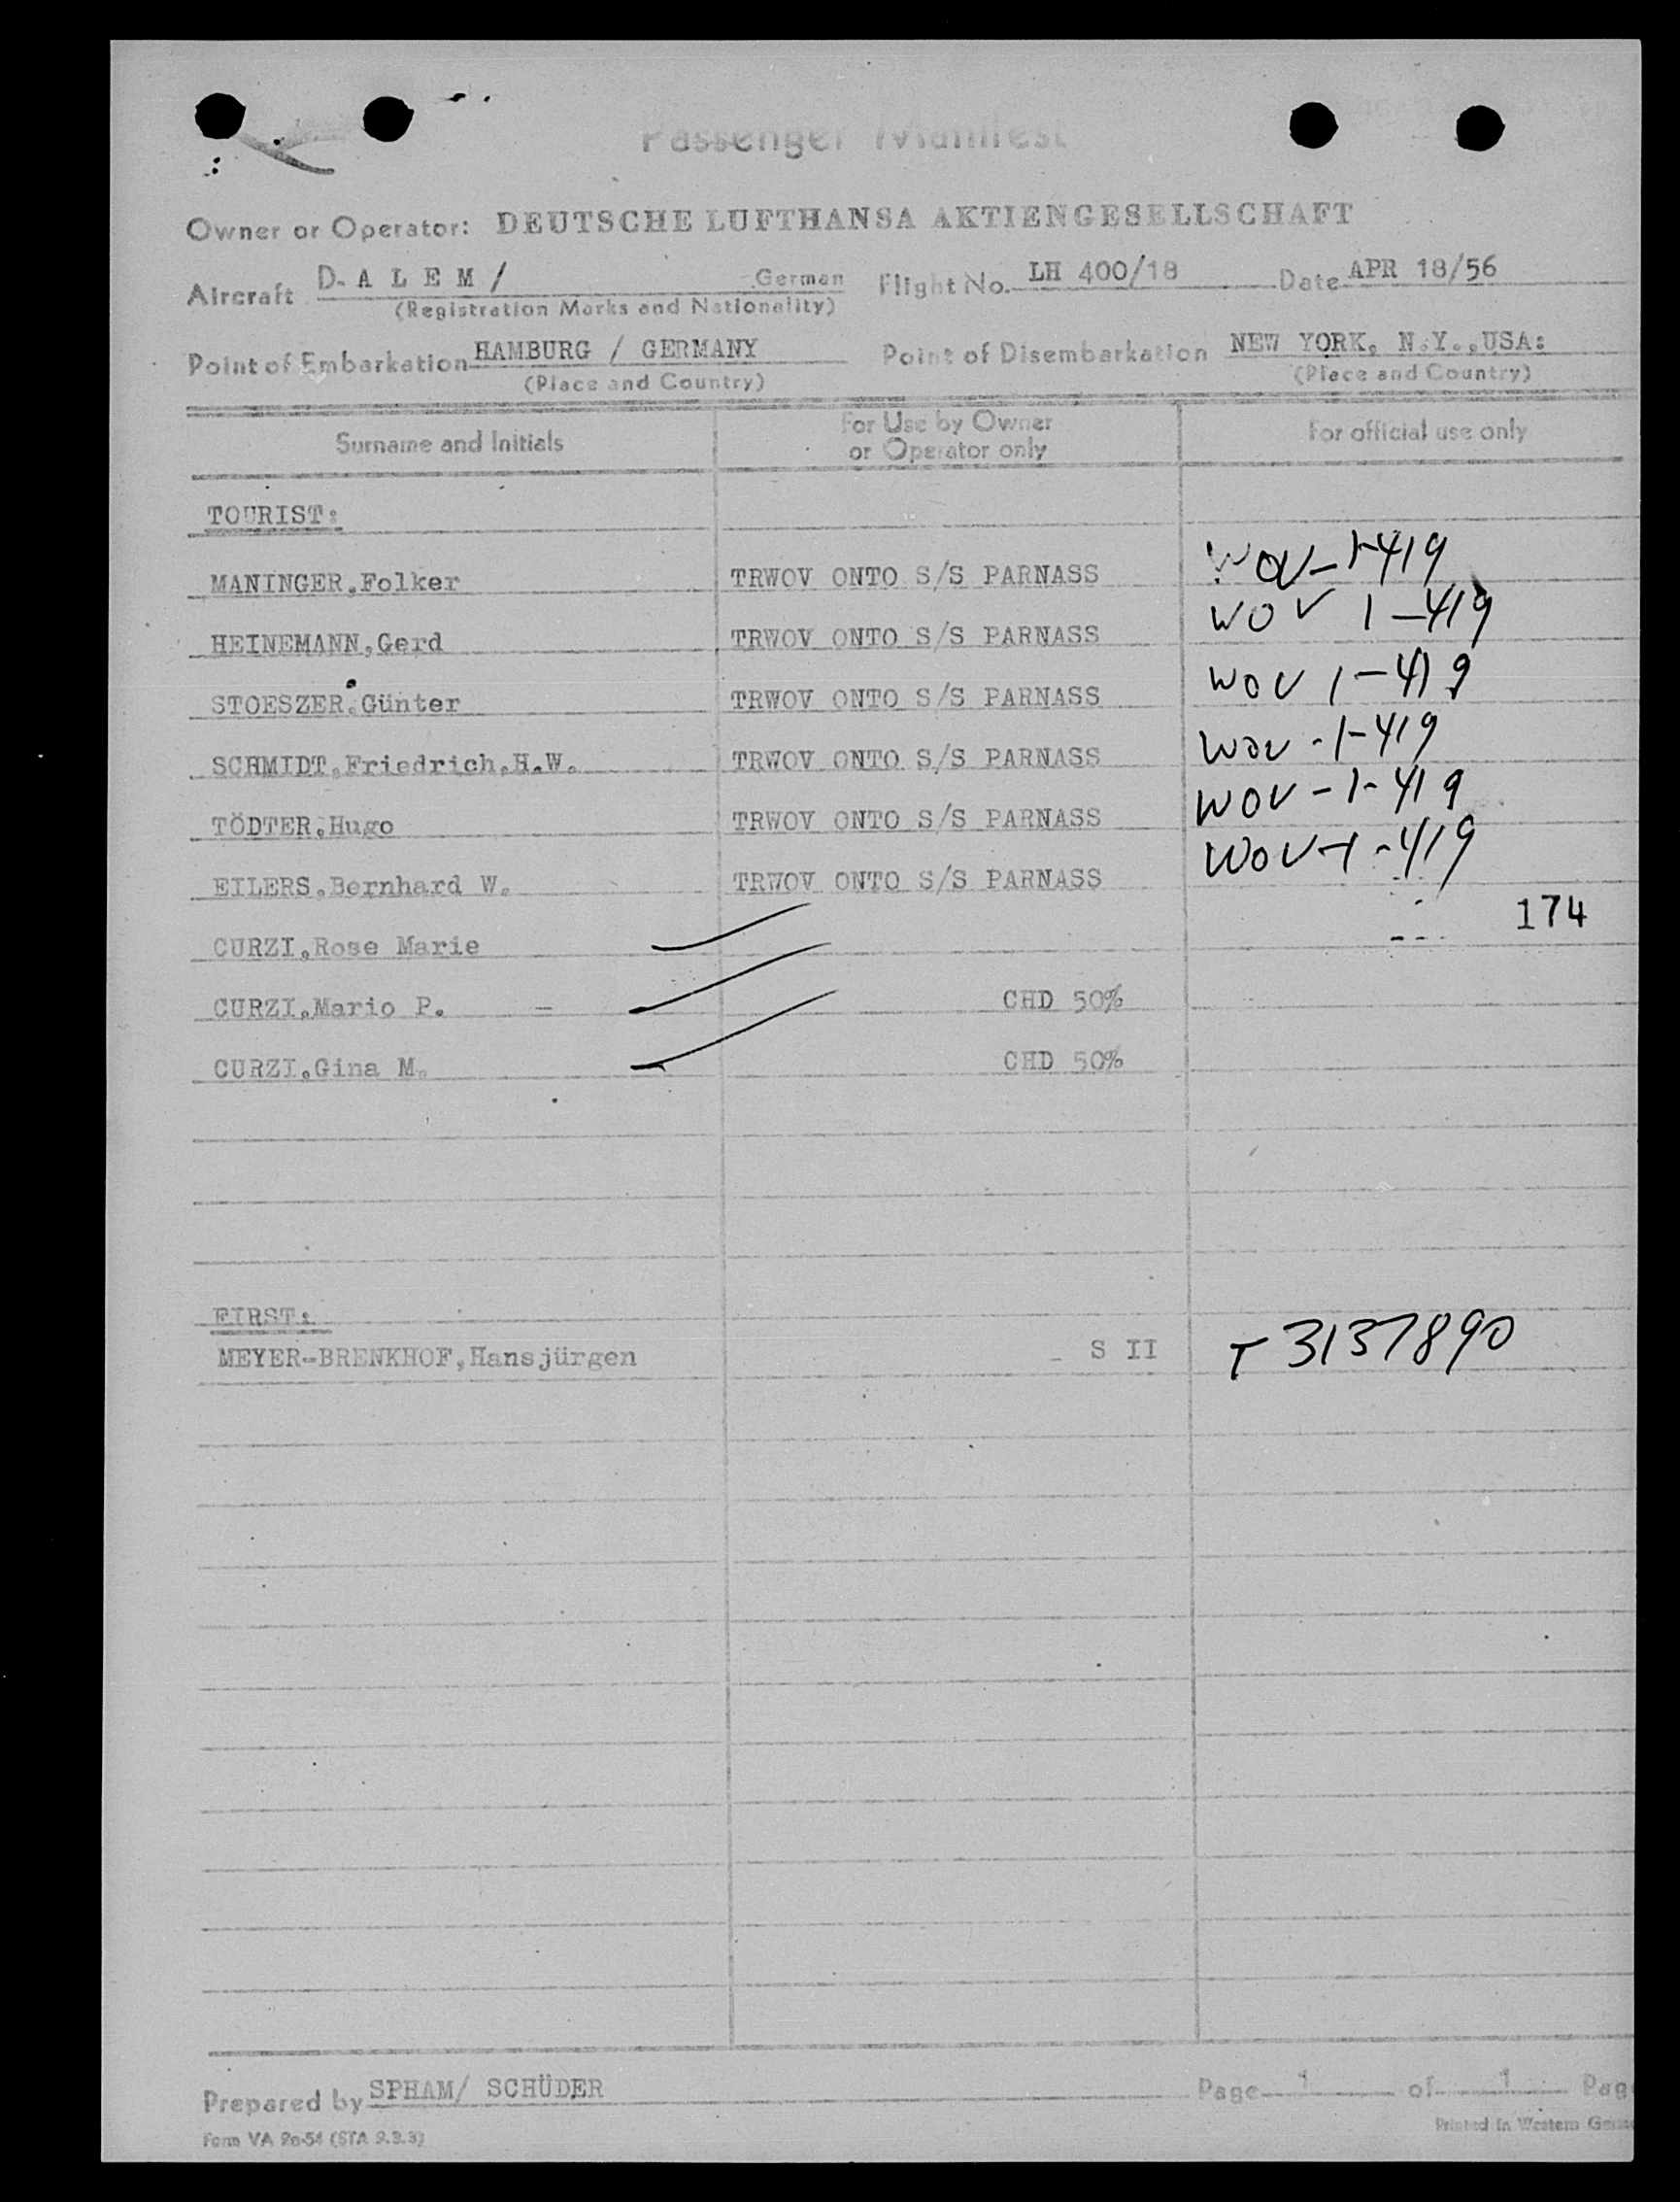 Passenger Manifest
Owner or Operator: DEUTSCHE LUFTHANSA AKTIENGESELLSCHAFT
Aircraft D- A L E M / German Flight No. LH 400/18 Date APR 18/56
(Registration Marks and Nationality)
Point of Embarkation HAMBURG / GERMANY Point of Disembarkation NEW YORK, N.Y.,USA:
(Place and Country) (Place and Country)
Surname and Initials For Use by Owner or Operator only For official use only
TOURIST:
MANINGER,Folker TRWOV ONTO S/S PARNASS WOV-1-419
HEINEMANN,Gerd TRWOV ONTO S/S PARNASS WOV 1-419
STOESZER,Günter TRWOV ONTO S/S PARNASS WOV 1-419
SCHMIDT,Friedrich,H.W. TRWOV ONTO S/S PARNASS WOV-1-419
TÖDTER,Hugo TRWOV ONTO S/S PARNASS WOV-1-419
EILERS,Bernhard W. TRWOV ONTO S/S PARNASS WOV-1-419
174
CURZI,Rose Marie
CURZI,Mario P. - CHD 50%
CURZI,Gina M. CHD 50%
FIRST:
MEYER-BRENKHOF,Hansjürgen - S II T 3137890
Prepared by SPHAM/ SCHÜDER Page 1 of 1 Pag
Form VA 2a-54 (STA 9.3.3) Printed in Western Germ